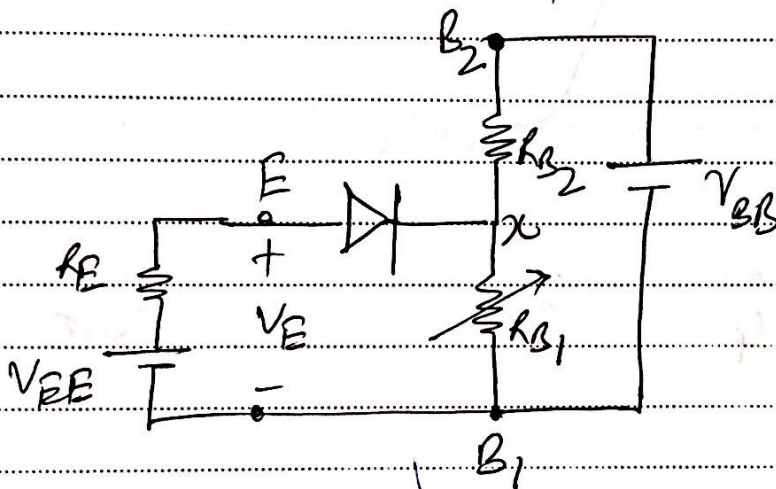 B2
RB2
VBB
E
x
RE
+
VE
RB1
VEE
-
B1